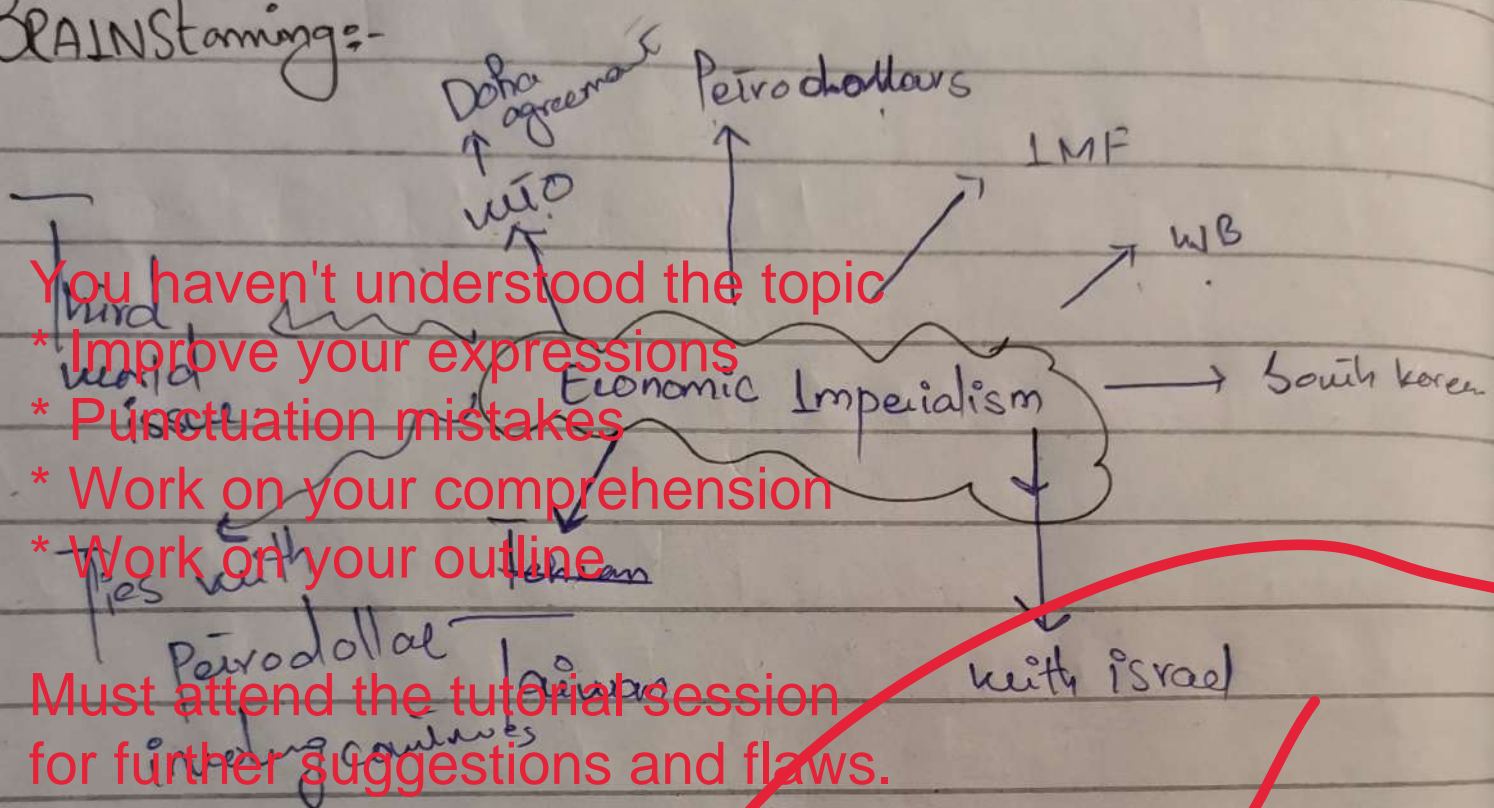 BRAINStorming:-
Doha
agreement
Petrodhollars
IMF
WTO
WB
Third
world
issue
Economic Imperialism
South korea
Ties with
Petrodollar
countries
Taiwan
with israel
You haven't understood the topic
* Improve your expressions
* Punctuation mistakes
* Work on your comprehension
* Work on your outline
Must attend the tutorial session
for further suggestions and flaws.